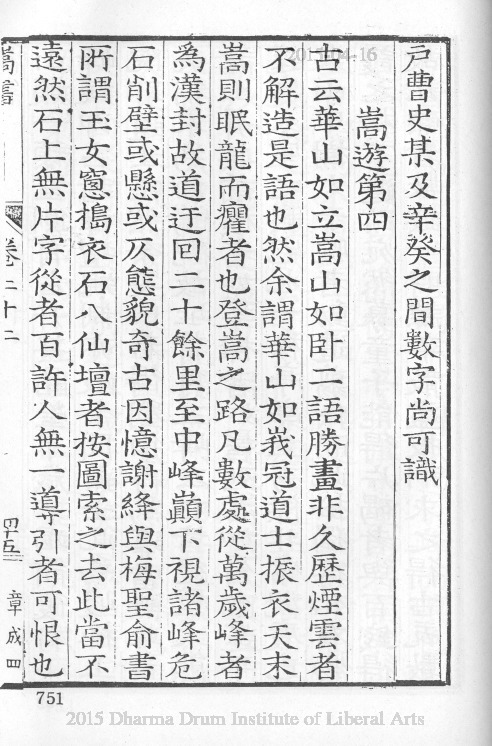 戶曹史某及辛癸之間數字尚可識
嵩遊第四
古云華山如立嵩山如臥二語勝畫非久歷煙雲者
不解造是語也然余謂華山如峩冠道士振衣天末
嵩則眠龍而癯者也登嵩之路凡數處從萬歲峰者
為漢封故道迂回二十餘里至中峰巔下視諸峰危
石削壁或懸或仄態貌奇古因憶謝絳與梅聖俞書
所謂玉女窻搗衣石八仙壇者按圖索之去此當不
遠然石上無片字從者百許人無一導引者可恨也
嵩書
卷二十二
四十五
章成四
751
2015-04-16
2015 Dharma Drum Institute of Liberal Arts